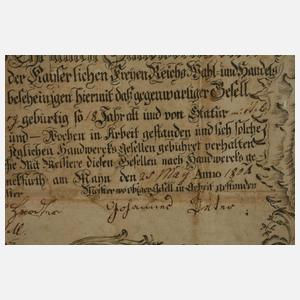 der Kayserlichen Freyen Reichs Wahl und Handels
bescheinigen hiermit daß gegenwartiger Gesell
gebürtig so 18 Jahr alt und von Statur mittel
und — Wochen in Arbeit gestanden und sich solche
jeglichen Handwercks Gesellen gebühret verhalten
Mit Meistere diesen Gesellen nach Handwercks ge
furth am Mayn den 25 May Anno
Meister wo obiger Gesell in Arbeit gestanden
Johannes Peter